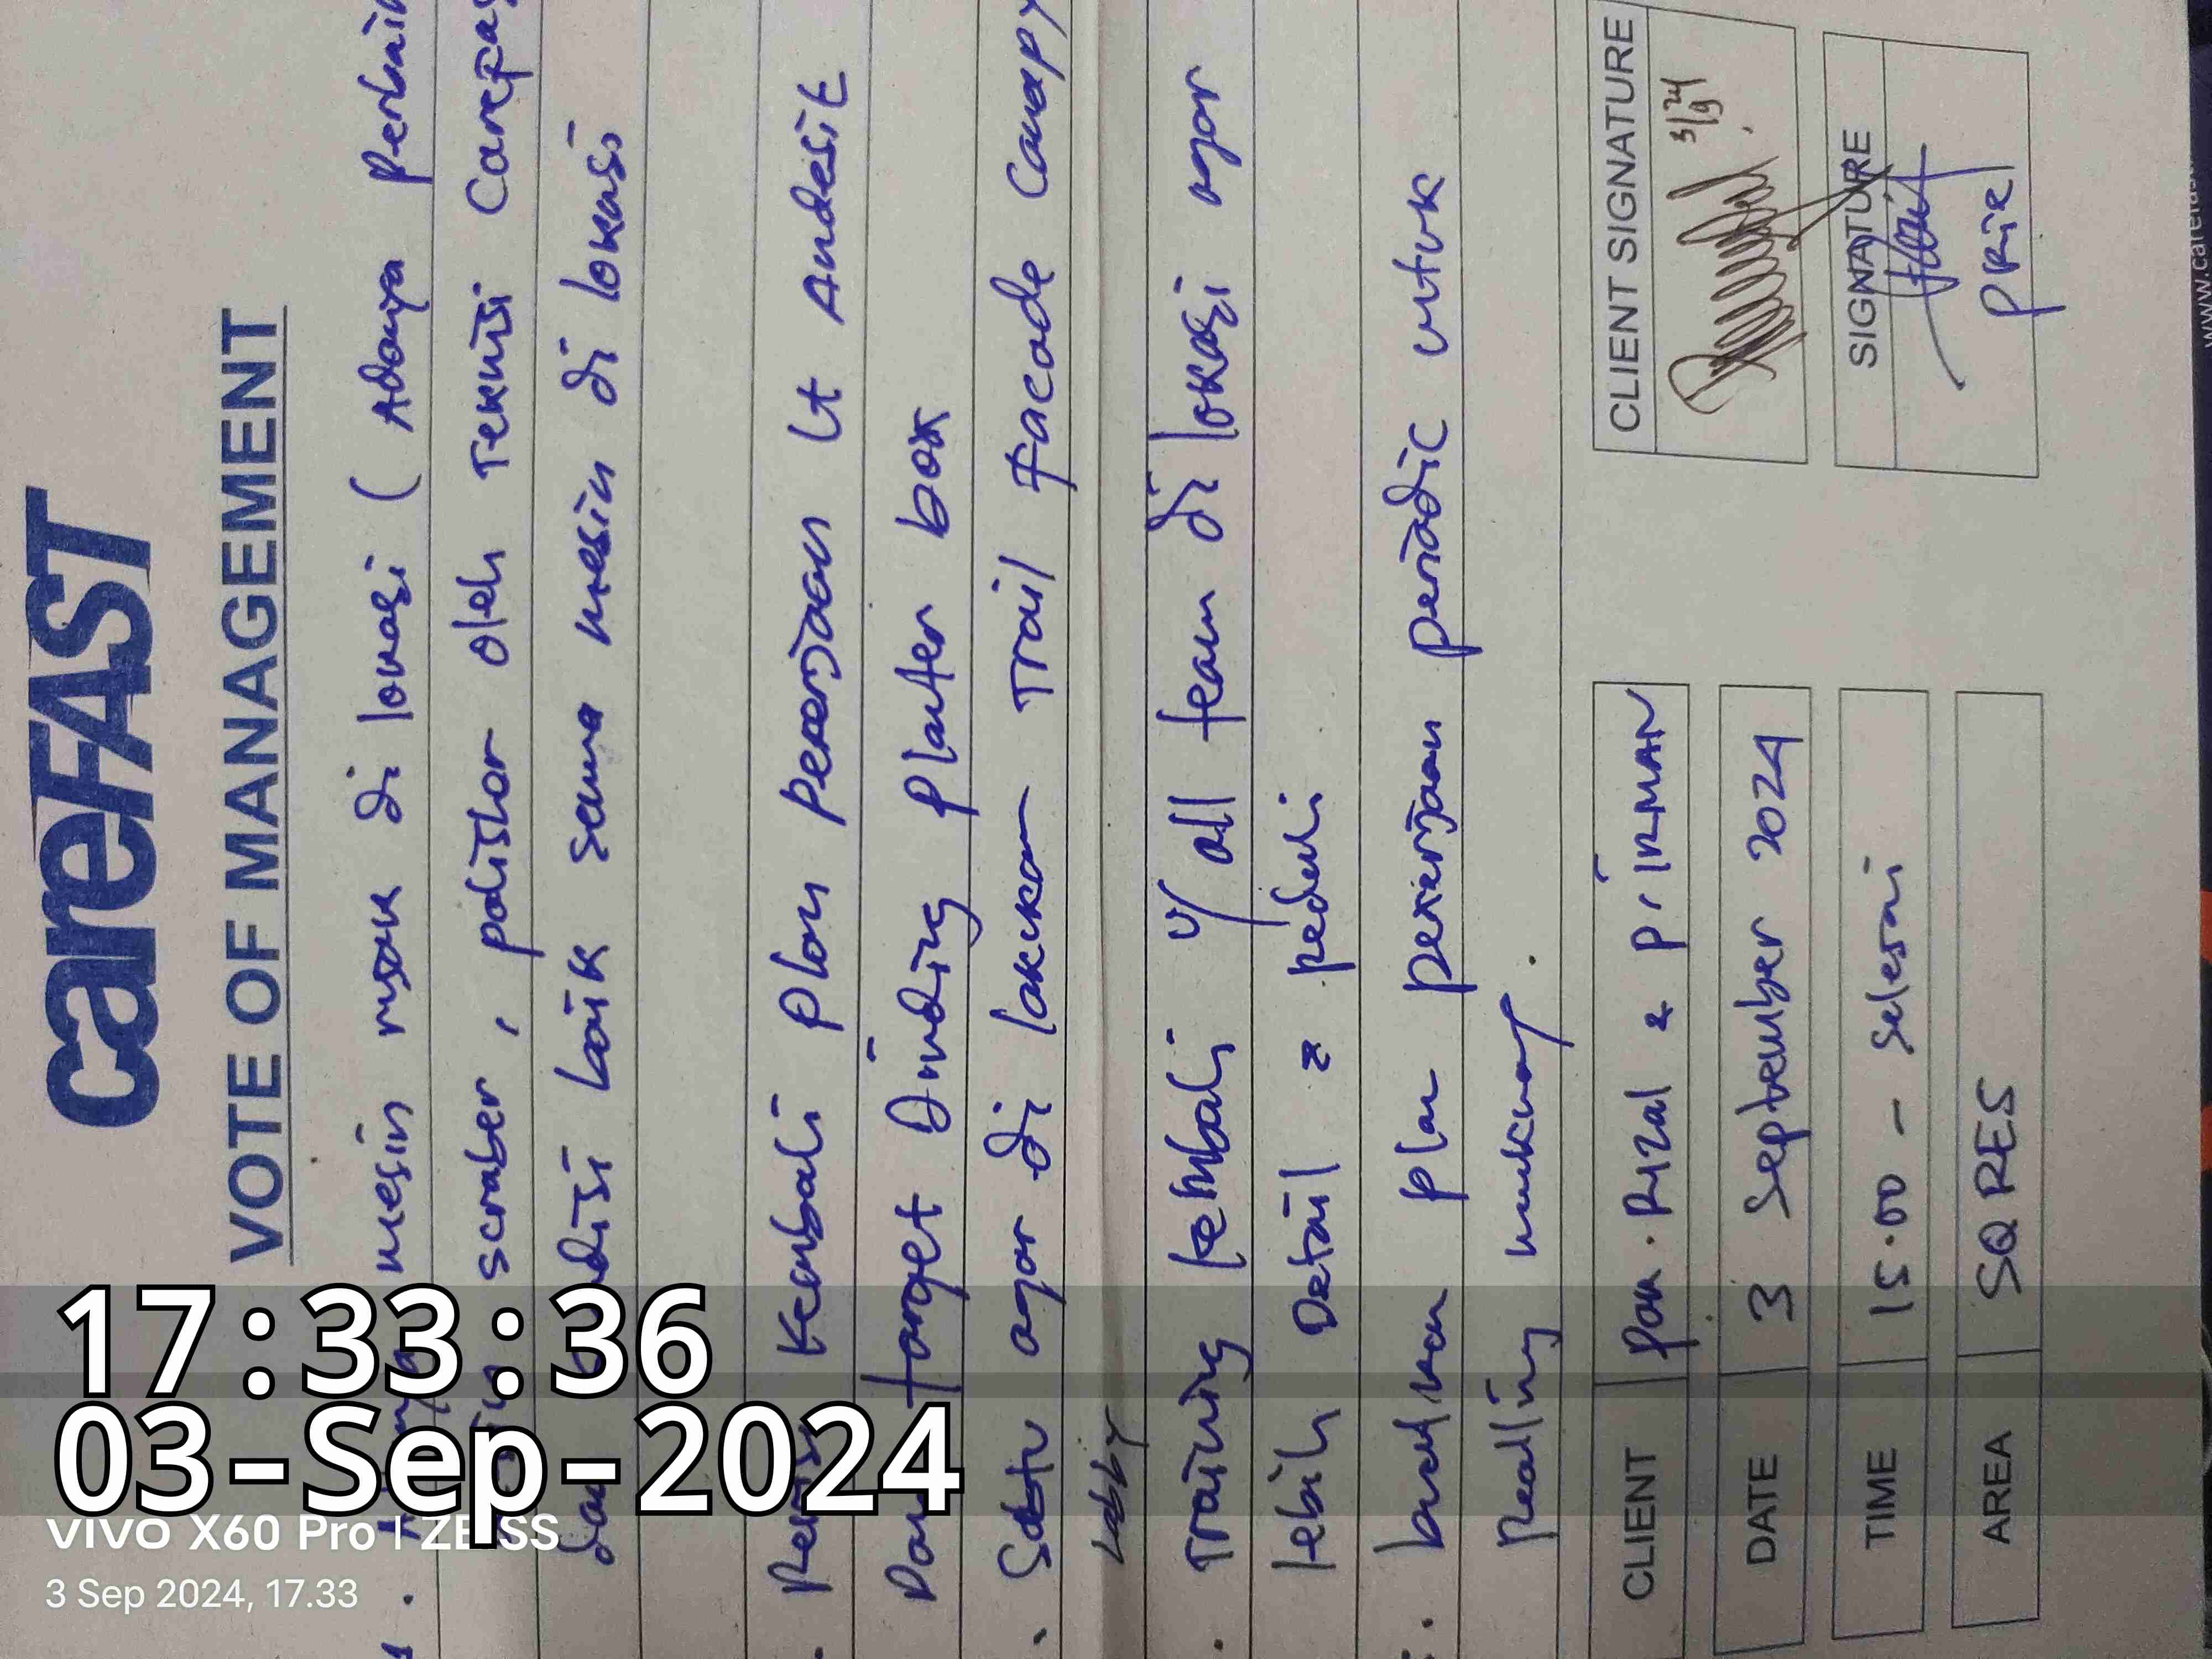 careFAST
VOTE OF MANAGEMENT
mesin rusak di lokasi ( Adanya perbaik
scraber , polisher oleh Teknisi Carefas
dan kondisi baik semua mesin di lokasi
Revisi Kembali plan pekerjaan Lt Andesit
Dan target Dinding planter box
Sabtu agar di lakukan Trail facade canopy
Lobby
Training kembali u/ all team di lokasi agar
lebih Detail & peduli
buatkan plan pekerjaan periodic untuk
Reading
CLIENT pak. Rizal & p. iRMAN
DATE 3 September 2024
TIME 15.00 - selesai
AREA SQ RES
CLIENT SIGNATURE
3/9 24
SIGNATURE
PRiel
www.carefas
17:33:36
03-Sep-2024
vivo X60 Pro | ZEISS
3 Sep 2024, 17.33